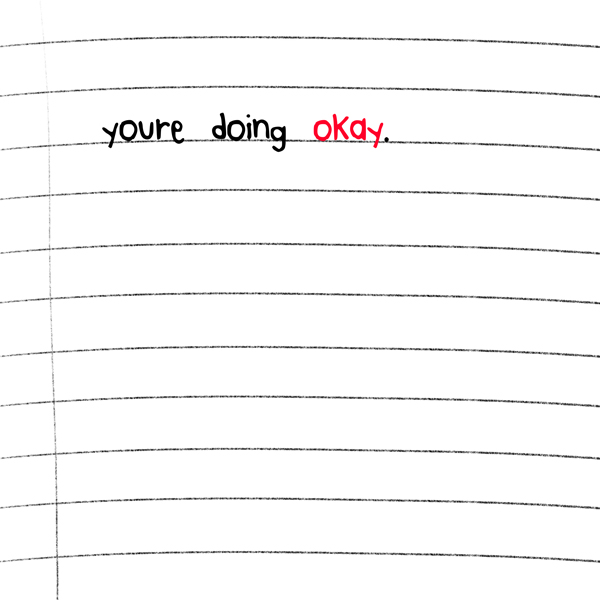 youre doing okay.